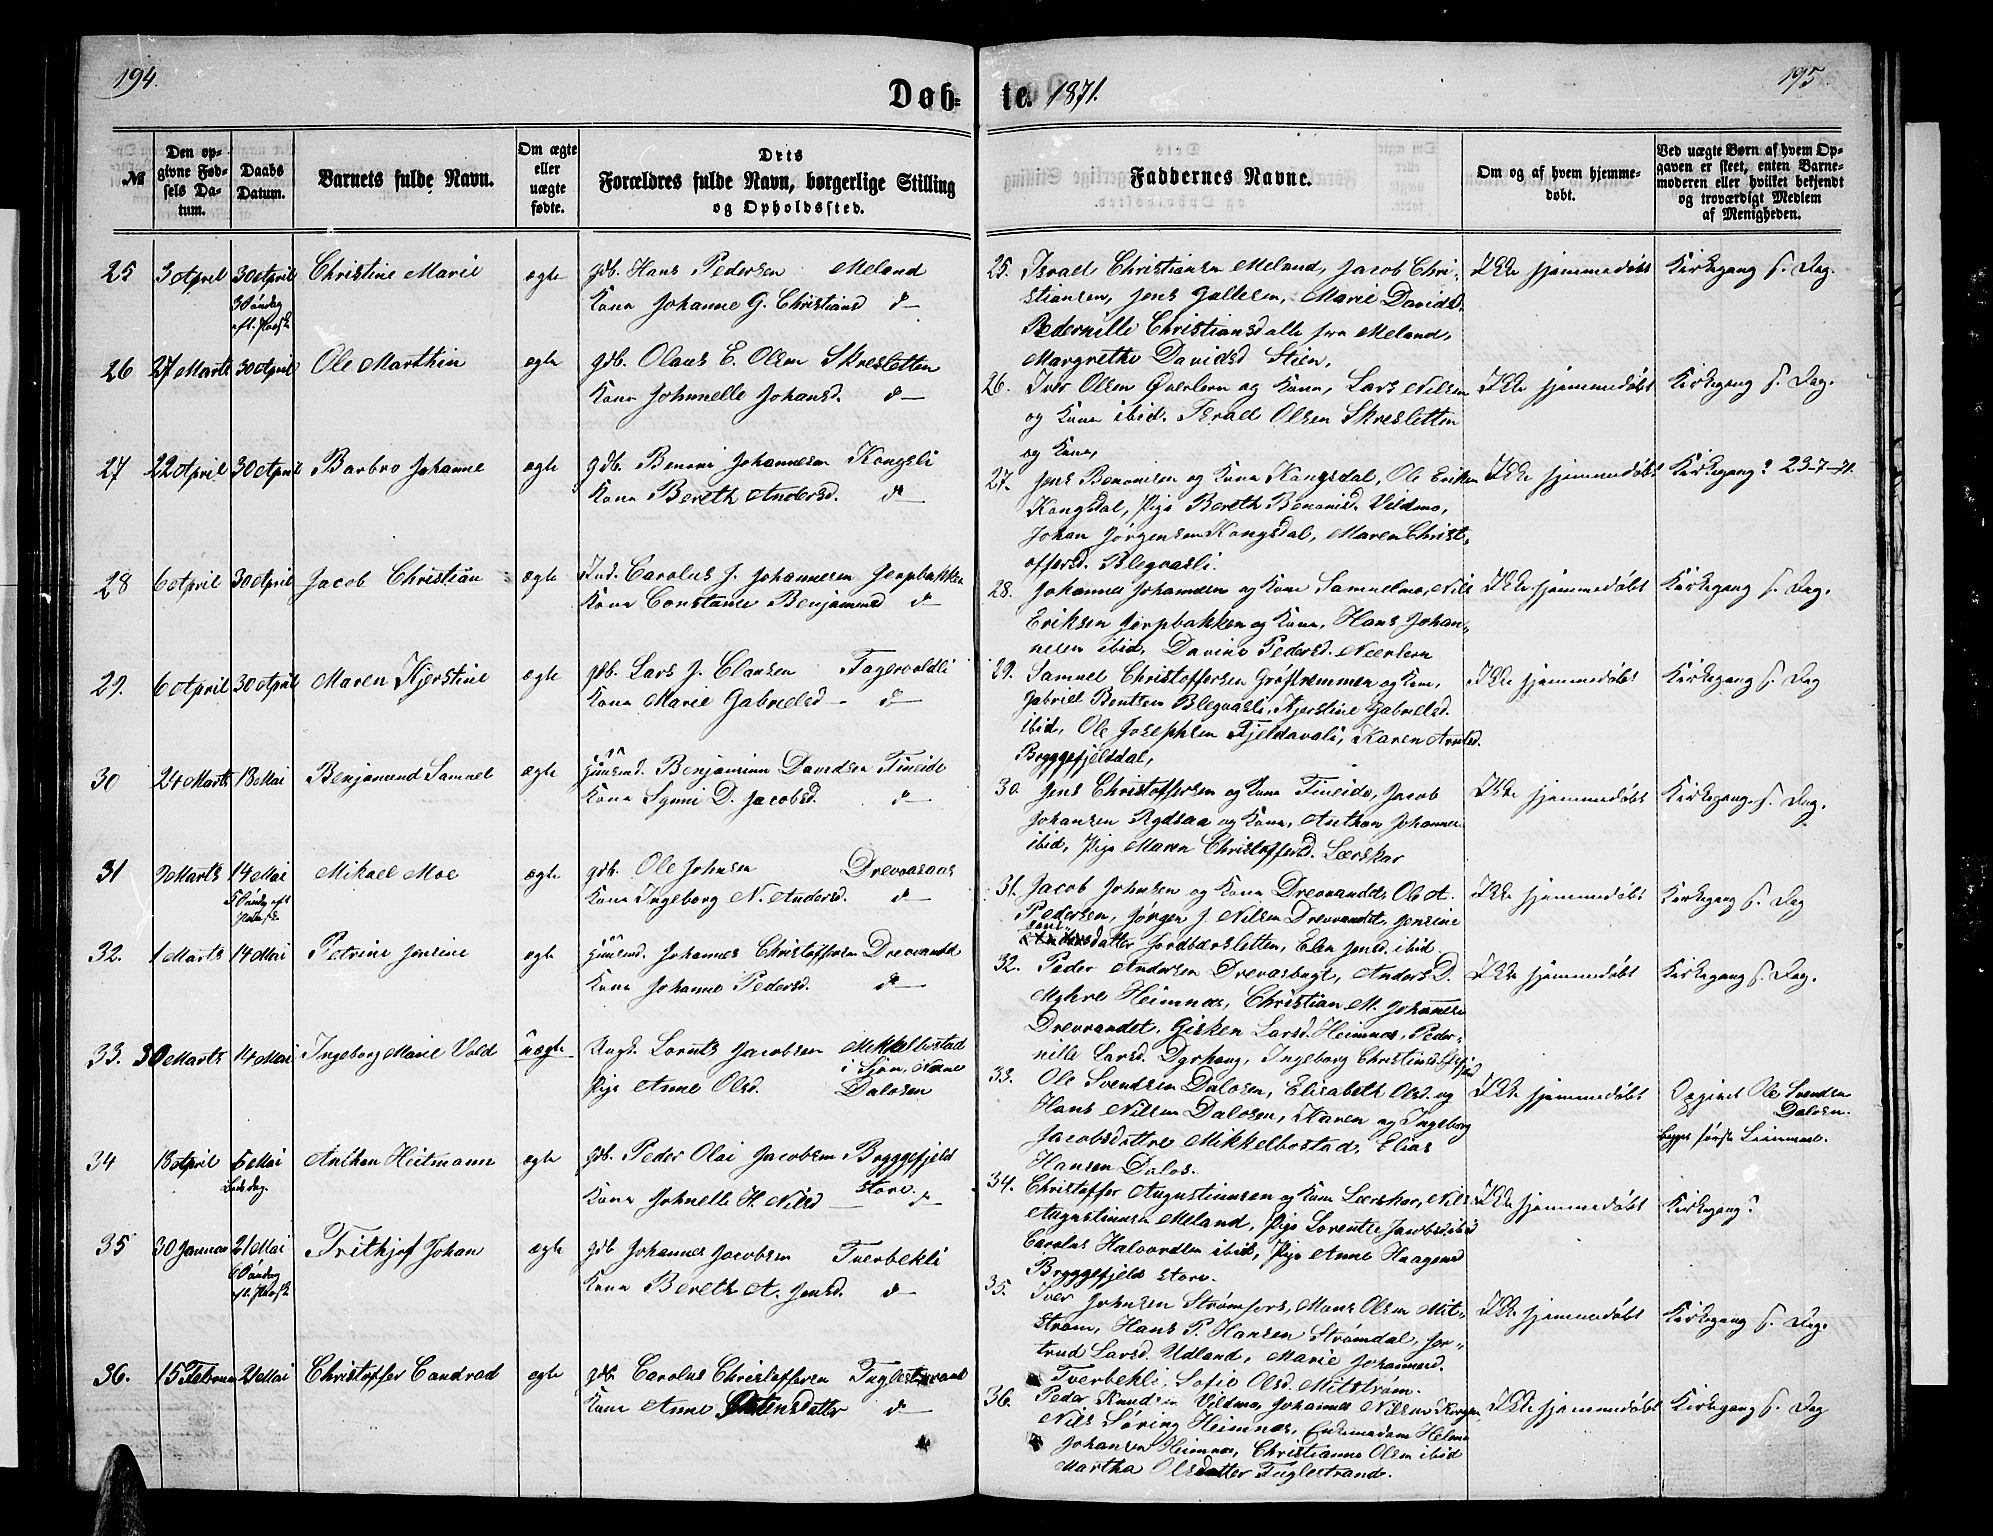 194.
Døb-
te. 1871.
195
№
Den op-
givne Fød-
sels Da-
tum.
Daabs
Datum.
Barnets fulde Navn.
Om ægte
eller
uægte
fødte.
Dets
Forældres fulde Navn, borgerlige Stilling
og Opholdssted.
Faddernes Navne.
Om og af hvem hjemme-
døbt.
Ved uægte Børn af hvem Op-
gaven er skeet, enten Barne-
moderen eller hvilket bekjendt
og troværdigt Medlem
af Menigheden.
25 3 April 30 April Christine Marie ægte gdb. Hans Pedersen Meland
3 Søndag eft. Paaske
Kone Johanne G. Christiansd d–
26 27 Marts 30 April Ole Marthin ægte gdb. Olaus E. Olsen Skresletten
Kone Johnnelle Johansd. d–
27 22 April 30 April Barbro Johanne ægte gdb. Benoni Johannesen Kongsli
Kone Bereth Andersd. d–
28 6 April 30 April Jacob Christian ægte Ind. Carolus J. Johannesen Jerpbakken
Kone Constance Benjaminsd d–
29. 6 April 30 April Maren Kjerstine ægte gdb. Lars J. Clausen Fagervoldli
Kone Marie Gabrielsd – d–
30 24 Marts 13 Mai Benjamand Samuel ægte Huusmd. Benjamin Davidsen Fineide
Kone Synni D. Jacobsd. d–
31 9 Marts 14 Mai Mikael Moe ægte gdb. Ole Johnsen Drevaaos
5 Søndag eft Paaske
Kone Ingeborg N. Andersd. d–
32. 1 Marts 14 Mai Petrine Jensine ægte Huusmd. Johannes Christoffersen Drevvandet
Kone Johanne Pedersd. d–
33. 30 Marts 14 Mai Ingeborg Marie Vold uægte Ungk. Lornts Jacobsen Mikkelbostad
i Sjona, Næsne
Pige Anne Olsd. Dalosen
34 13 April 5 Mai Anthon Heitmann ægte gdb. Peder Olai Jacobsen Bryggefjeld
Bededag. store.
Kone Johnelle H. Nilsd – d–
35 30 Januar 21 Mai Frithjof Johan ægte gdb Johannes Jacobsen Tverbekli
6 Søndag eft. Paaske
Kone Bereth A. Jensd. d–
36. 15 Februar 21 Mai Christoffer Candrad ægte gdb. Carolus Christoffersen Fuglestrand
Kone Anne Petersdatter d–
25. Israel Christiansen Meland, Jacob Chri- Ikke hjemmedøbt Kirkegang s. Dag.
stiansen, Jens Galtesen, Marie Davidsd.
Pedernille Christiansd alle fra Meland,
Margrethe Davidsd Stien,
26. Iver Olsen Øverlern og Kone, Lars Nilsen Ikke hjemmedøbt Kirkegang s. Dag.
og Kone ibid. Israel Olsen Skresletten
og Kone,
27. Jens Benonisen og Kone Kongsdal, Ole Eriksen Ikke hjemmedøbt Kirkegang? 23-7-71.
Kongsdal, Pige Bereth Benonisd. Vildmo,
Johan Jørgensen Kongsdal, Maren Christ-
offersd. Blegvasli.
28. Johannes Johansen og Kone Samuelmo, Nils Ikke hjemmedøbt Kirkegang s. Dag.
Eriksen Jerpbakken og Kone, Hans Johan-
nesen ibid, Davine Pedersd. Nerlern
29. Samuel Christoffersen Grøftremmen og Kone, Ikke hjemmedøbt Kirkegang s. Dag
Gabriel Bentsen Blegvasli, Kjerstine Gabrielsd.
ibid, Ole Josephsen Fjeldavali, Karen Arntsd.
Bryggefjelddal,
30. Jens Christoffersen og Kone Fineide, Jacob Ikke hjemmedøbt Kirkegang. s. Dag.
Johansen Rydsaa og Kone, Anthon Johannesen
ibid, Pige Maren Christoffersd. Lærskar
31. Jacob Johnsen og Kone Drevvandet, Ole A. Ikke hjemmedøbt Kirkegang s. Dag
Pedersen, Jørgen J. Nilsen Drevvandet, Jensine
datter Jordbærsletten, Elen Jensd. ibid.
32. Peder Andersen Drevasbugt, Anders D. Ikke hjemmedøbt Kirkegang s. Dag.
Myhre Heimnæs, Christian M. Johannesen
Drevvandet, Gisken Larsd. Heimnæs, Peder-
nille Larsd. Dyrhaug, Ingeborg Christiansd.
33. Ole Svendsen Dalosen, Elisabeth Olsd. og Ikke hjemmedøbt Opgivet Ole Svendsen
Dalosen.
Hans Nilsen Dalosen, Karen og Ingeborg
Begges første Leiermaal.
Jacobsdøttre Mikkelbostad, Elias
Hansen Dalos.
34. Christoffer Augustinusen og Kone Lærskar, Nils Ikke hjemmedøbt Kirkegang?
Augustinusen Meland, Pige Lorentse Jacobsd. ibid
Carolus Halvordsen ibid, Pige Anne Haagensd
Bryggefjeld store.
35. Iver Johnsen Strømfors, Mons Olsen Mit- Ikke hjemmedøbt Kirkegang s. Dag.
strøm, Hans P. Hansen Strømdal, Jer-
trud Larsd. Udland, Marie Johannesd.
Tverbekli, Sofie Olsd. Mitstrøm.
36. Peder Knudsen Vildmo, Johannes Nilsen Korgen, Ikke hjemmedøbt Kirkegang s. Dag
Nils Søring Heimnæs, Enkemadam Helena
Johansen Heimnæs, Christianne Olsen ibid
Martha Olsdatter Fuglestrand.